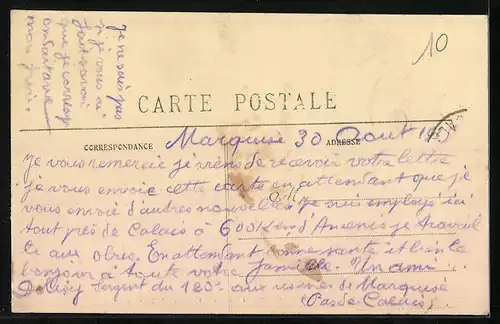 Je ne sais pas
si je vous ai
fait savoir
que je corresp
mon frère.
10
CARTE POSTALE
CORRESPONDANCE
ADRESSE
Marquise 30 Aout 19
Je vous remercie je viens de recevoir votre lettre
je vous envoie cette carte en attendant que je
vous envoie d'autres nouvelles. je suis employé ici
tout près de Calais à 600 Km d'Amiens je travail
le aux obus. En attendant bonne sante et bien le
bonjour à toute votre famille. Un ami
Sergent du 180e aux usines de Marquise
(Pas de Calais)